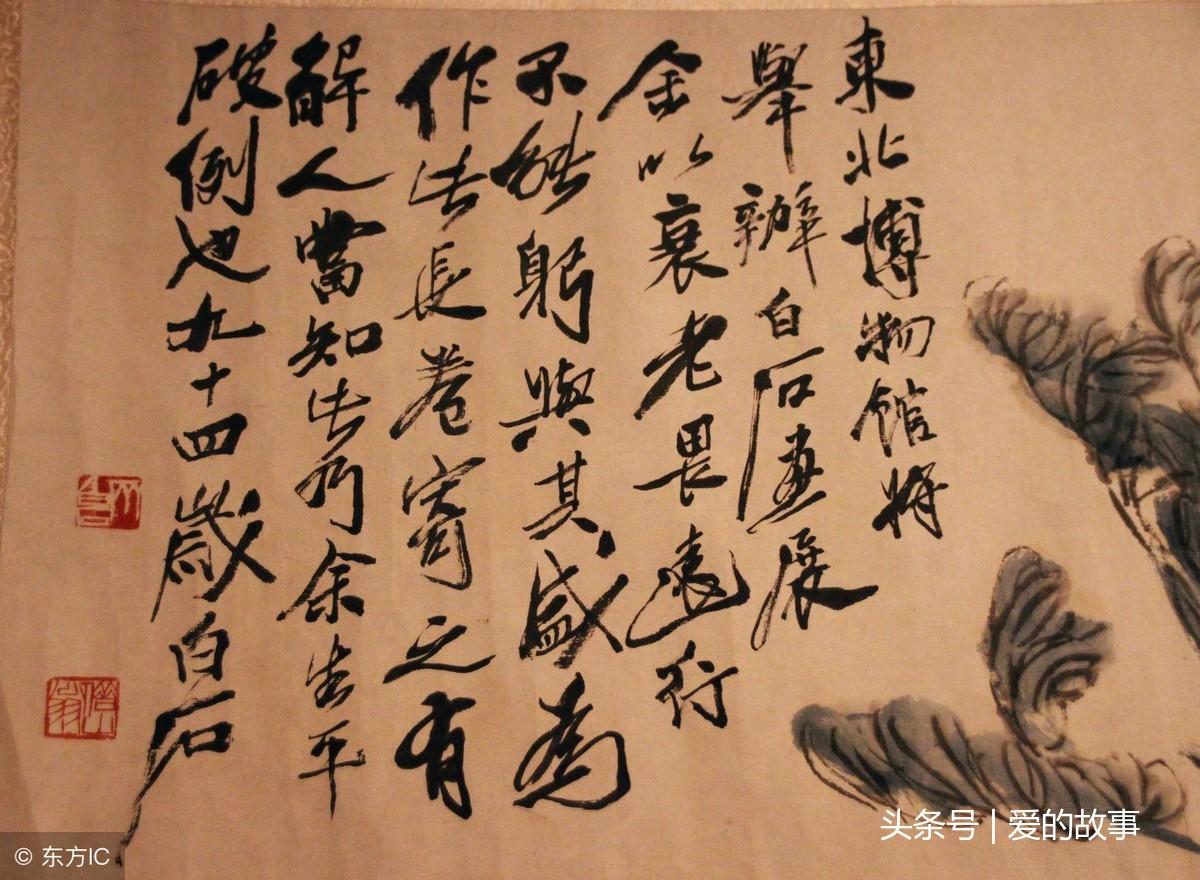 東北博物館將
舉辦白石畫展
余以衰老畏遠行
不能躬與其盛為
作此長卷寄之有
解人當知此乃余生平
破例也九十四歲白石
头条号 | 爱的故事
© 东方IC